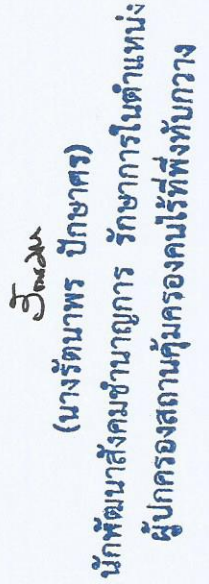 (นางรัตนาพร ปักษาศร)
นักพัฒนาสังคมชำนาญการ รักษาการในตำแหน่ง
ผู้ปกครองสถานคุ้มครองคนไร้ที่พึ่งทับกวาง